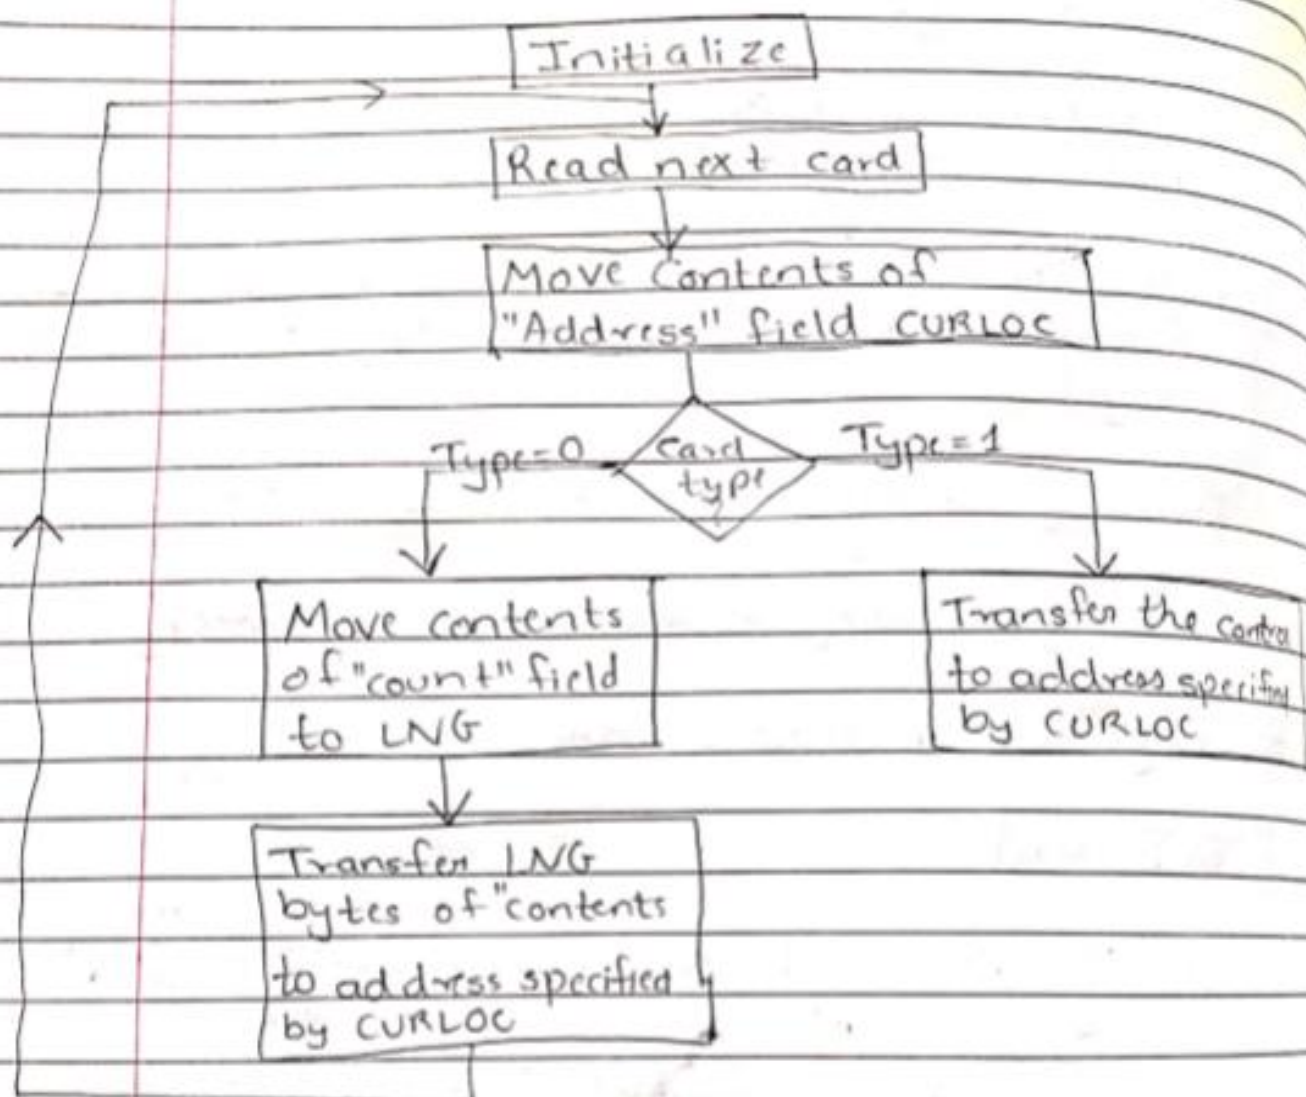 Initialize
Read next card
Move Contents of
"Address" field CURLOC
Type=0
Card
type
?
Type=1
Move contents
of "count" field
to LNG
Transfer the
to address
by CURLOC
Transfer LNG
bytes of "contents
to address specified
by CURLOC